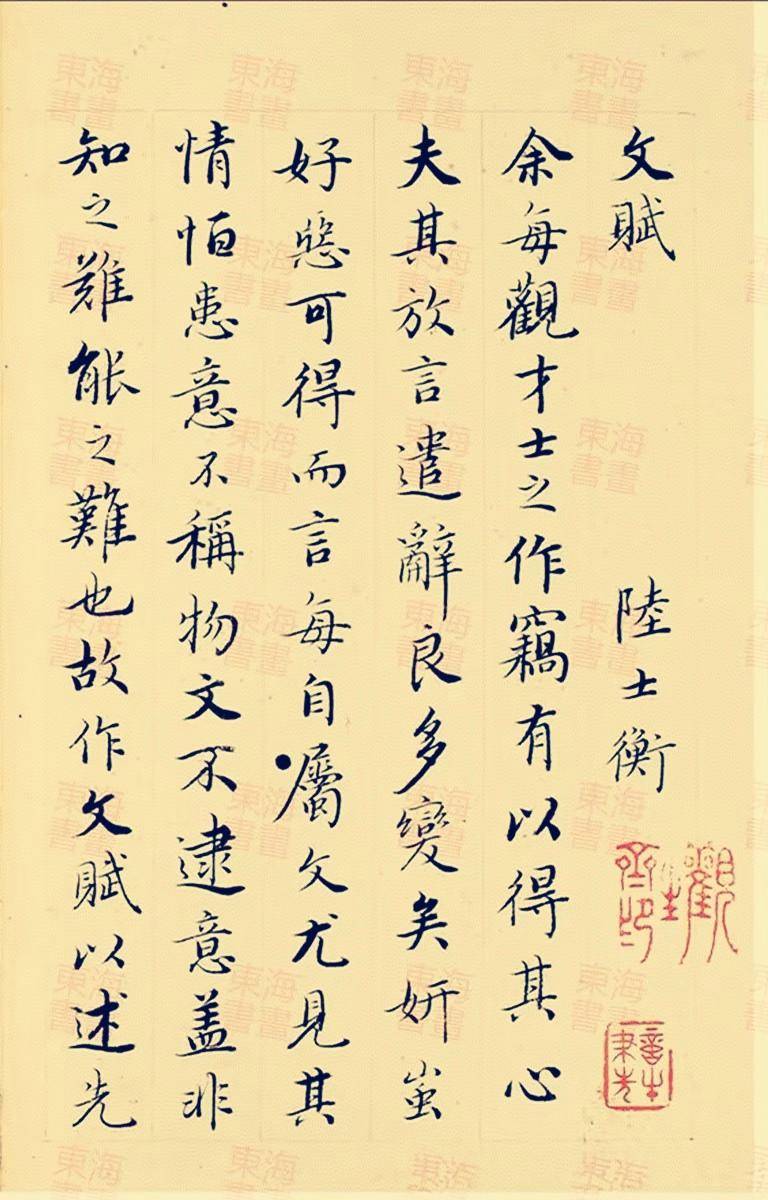 文賦 陸士衡
余每觀才士之作竊有以得其心
夫其放言遣辭良多變矣妍蚩
好惡可得而言每自屬文尤見其
情恒患意不稱物文不逮意盖非
知之難能之難也故作文賦以述先
東海書畫